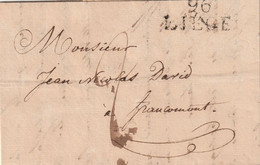 96
LIEGE
Monsieur
Jean Nicolas David
à francomont